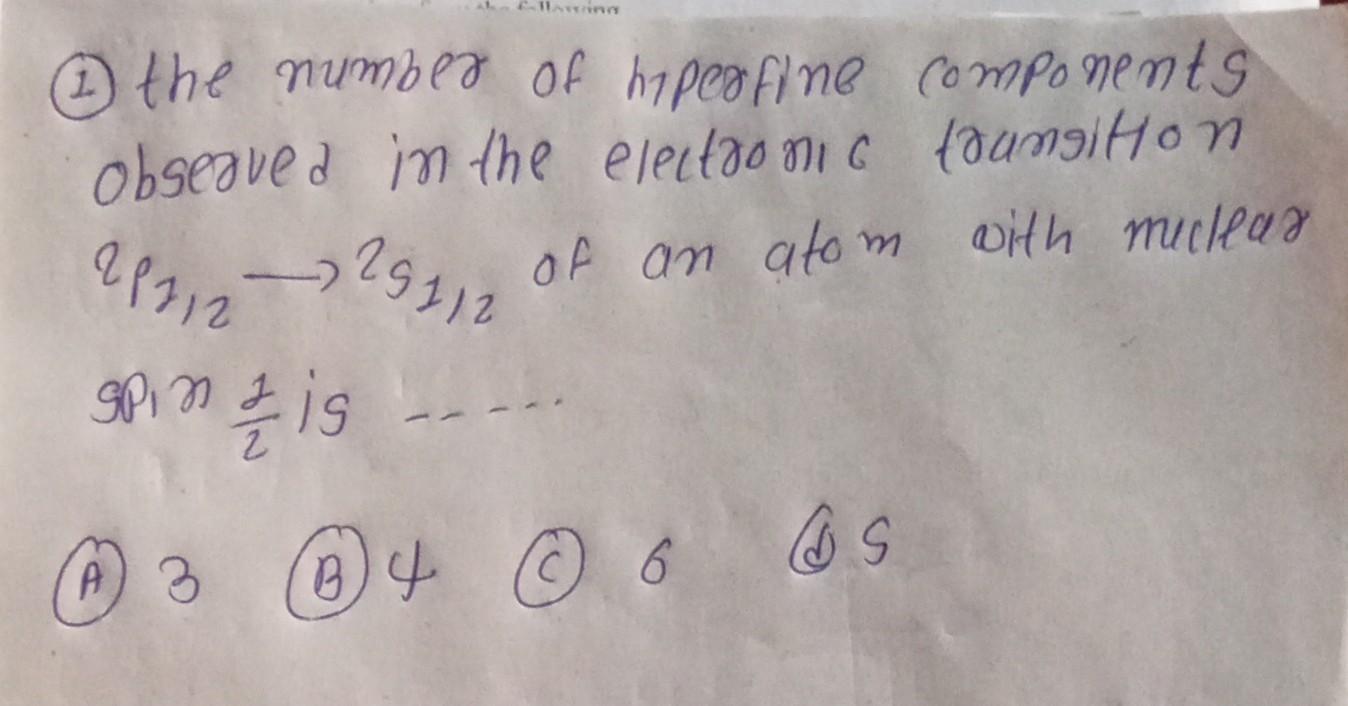 the following
① the number of hyperfine components
observed in the electronic transition
²P₁/₂ → ²S₁/₂ of an atom with nuclear
spin 1/2 is -----
Ⓐ 3 Ⓑ 4 Ⓒ 6 ⓓ 5